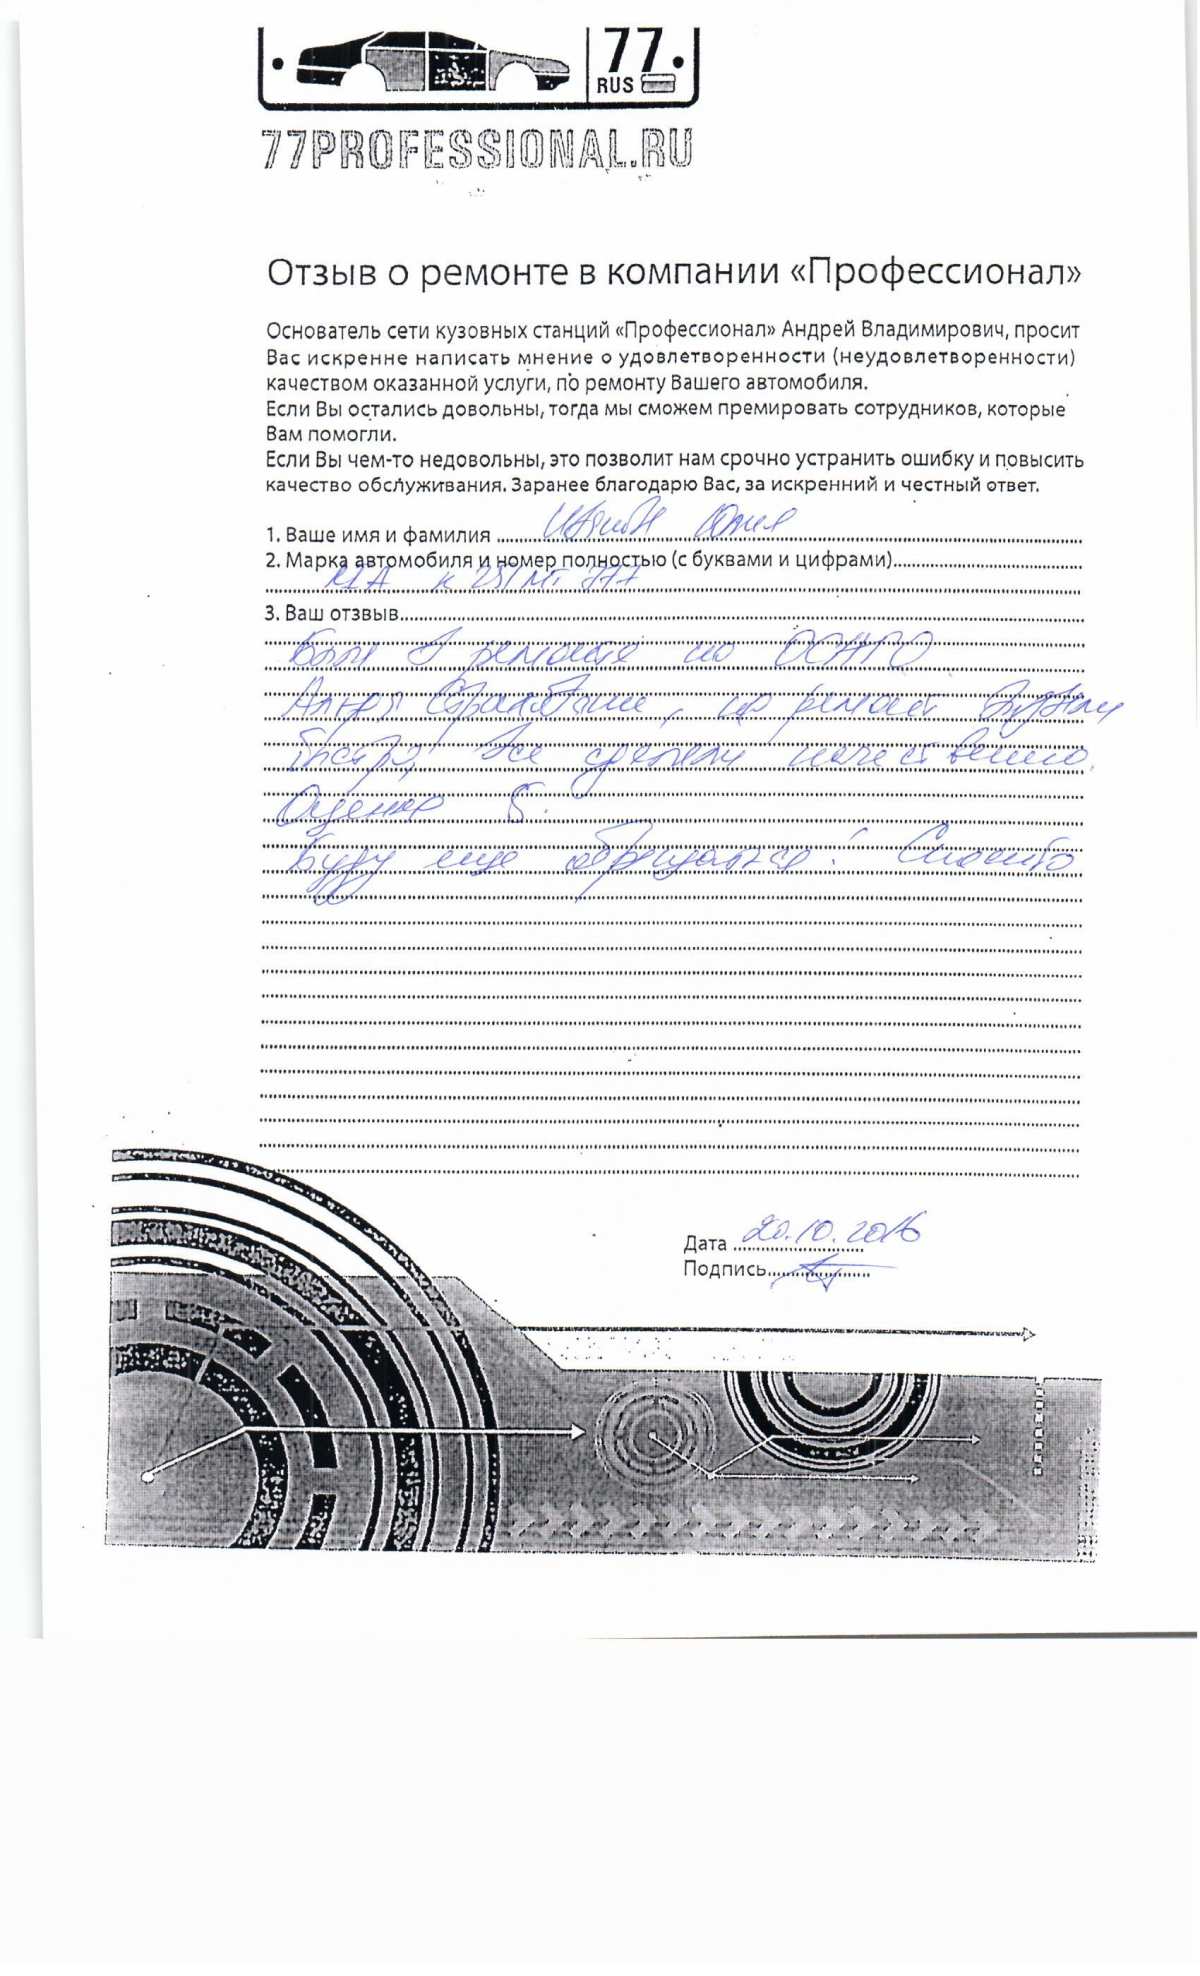 77
RUS
77PROFESSIONAL.RU
Отзыв о ремонте в компании «Профессионал»
Основатель сети кузовных станций «Профессионал» Андрей Владимирович, просит
Вас искренне написать мнение о удовлетворенности (неудовлетворенности)
качеством оказанной услуги, по ремонту Вашего автомобиля.
Если Вы остались довольны, тогда мы сможем премировать сотрудников, которые
Вам помогли.
Если Вы чем-то недовольны, это позволит нам срочно устранить ошибку и повысить
качество обслуживания. Заранее благодарю Вас, за искренний и честный ответ.
1. Ваше имя и фамилия Юлия
2. Марка автомобиля и номер полностью (с буквами и цифрами)
3. Ваш отзвыв
в ремонте по ОСАГО
Альфа Страхование, на ремонт
быстро, все сделали качественно.
Оценка 5.
Буду еще обращаться! Спасибо
Дата 20.10.2016
Подпись